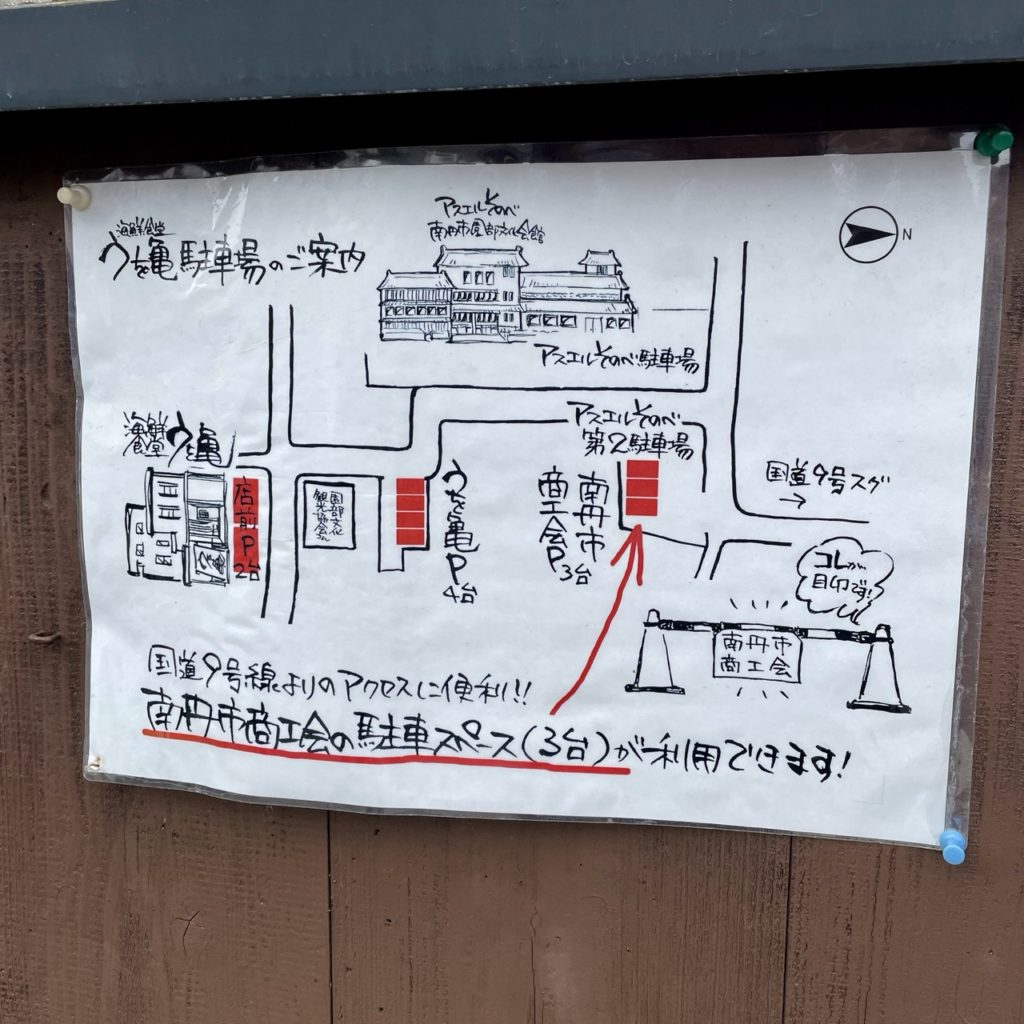 海鮮食堂
うを亀 駐車場のご案内
アスエルそのべ
南丹市園部文化会館
N
アスエルそのべ駐車場
アスエルそのべ
第2駐車場
国道9号スグ
→
海鮮
食堂
うを亀
店前P
2台
園部文化
観光協会さん
うを亀P
4台
南丹市
商工会P
3台
コレが
目印です!
南丹市
商工会
国道9号線よりのアクセスに便利!!
南丹市商工会の駐車スペース(3台)が利用できます!